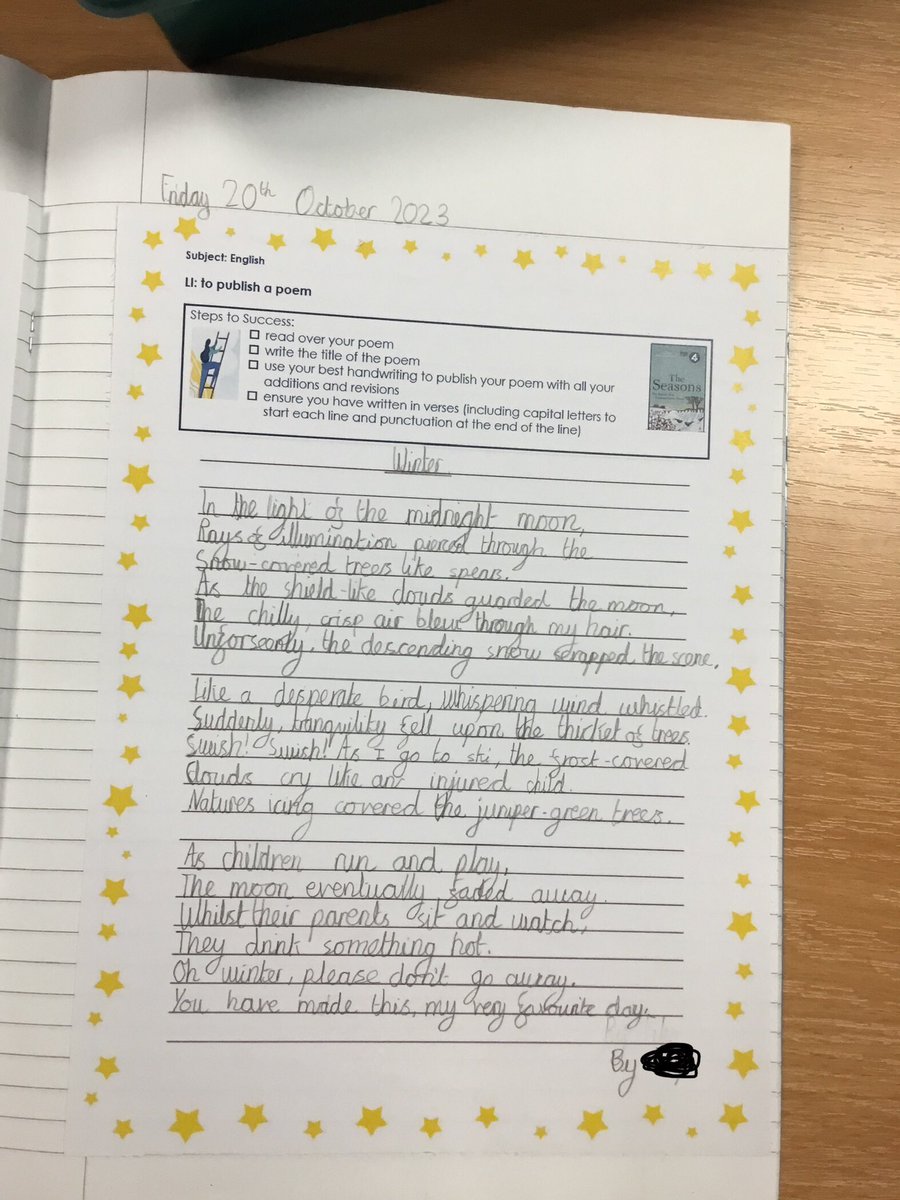 Friday 20th October 2023
Subject: English
LI: to publish a poem
Steps to Success:
read over your poem
write the title of the poem
use your best handwriting to publish your poem with all your
additions and revisions
ensure you have written in verses (including capital letters to
start each line and punctuation at the end of the line)
4
The
Seasons
Winter
In the light of the midnight moon,
Rays of illumination pierced through the
Snow-covered trees like spears.
As the shield-like clouds guarded the moon,
The chilly, crisp air blew through my hair.
Unforseently, the descending snow scrapped the scene.
Like a desperate bird, whispering wind whistled.
Suddenly, tranquility fell upon the thicket of trees.
Swish! Swish! As I go to ski, the frost-covered
Clouds cry like an injured child.
Natures icing covered the juniper-green trees.
As children run and play,
The moon eventually faded away.
Whilst their parents sit and watch,
They drink something hot.
Oh winter, please don't go away.
You have made this, my very favourite day.
By